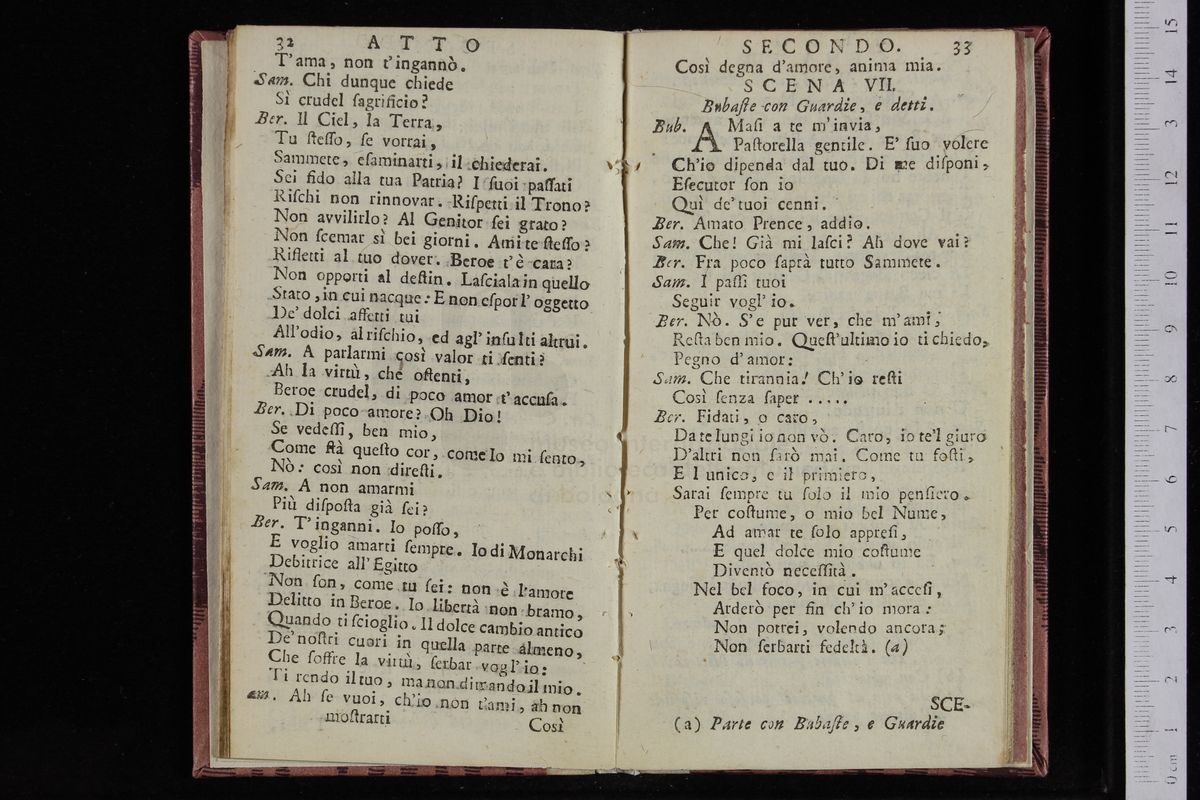 32 ATTO
T'ama, non t'ingannò.
Sam. Chi dunque chiede
Sì crudel ſagrificio?
Ber. Il Ciel, la Terra,
Tu ſteſſo, ſe vorrai,
Sammete, eſaminarti, il chiederai.
Sei fido alla tua Patria? I ſuoi paſſati
Riſchi non rinnovar. Riſpetti il Trono?
Non avvilirlo? Al Genitor ſei grato?
Non ſcemar sì bei giorni. Ami te ſteſſo?
Rifletti al tuo dover. Beroe t'è cara?
Non opporti al deſtin. Laſciala in quello
Stato, in cui nacque: E non eſpor l'oggetto
De' dolci affetti tui
All'odio, al riſchio, ed agl'inſulti altrui.
Sam. A parlarmi così valor ti ſenti?
Ah la virtù, che oſtenti,
Beroe crudel, di poco amor t'accuſa.
Ber. Di poco amore? Oh Dio!
Se vedeſſi, ben mio,
Come ſtà queſto cor, come Io mi ſento,
Nò: così non direſti.
Sam. A non amarmi
Più diſpoſta già ſei?
Ber. T'inganni. Io poſſo,
E voglio amarti ſempre. Io di Monarchi
Debitrice all'Egitto
Non ſon, come tu ſei: non è l'amore
Delitto in Beroe. Io libertà non bramo,
Quando ti ſcioglio. Il dolce cambio antico
De' noſtri cuori in quella parte almeno,
Che ſoffre la virtù, ſerbar vogl'io:
Ti rendo il tuo, ma non dimando il mio.
am. Ah ſe vuoi, ch'io non t'ami, ah non
moſtrarti
Così
SECONDO. 33
Così degna d'amore, anima mia.
SCENA VII.
Bubaſte con Guardie, e detti.
Bub. AMaſi a te m'invia,
Paſtorella gentile. E' ſuo volere
Ch'io dipenda dal tuo. Di me diſponi,
Eſecutor ſon io
Quì de' tuoi cenni.
Ber. Amato Prence, addio.
Sam. Che! Già mi laſci? Ah dove vai?
Ber. Fra poco ſaprà tutto Sammete.
Sam. I paſſi tuoi
Seguir vogl'io.
Ber. Nò. S'e pur ver, che m'ami,
Reſta ben mio. Queſt'ultimo io ti chiedo,
Pegno d'amor:
Sam. Che tirannia! Ch'io reſti
Così ſenza ſaper .....
Ber. Fidati, o caro,
Da te lungi io non vò. Caro, io te'l giuro
D'altri non ſarò mai. Come tu foſti,
E l unico, e il primiero,
Sarai ſempre tu ſolo il mio penſiero.
Per coſtume, o mio bel Nume,
Ad amar te ſolo appreſi,
E quel dolce mio coſtume
Diventò neceſſità.
Nel bel foco, in cui m'acceſi,
Arderò per fin ch'io mora:
Non potrei, volendo ancora,
Non ſerbarti fedeltà. (a)
SCE-
(a) Parte con Bubaſte, e Guardie